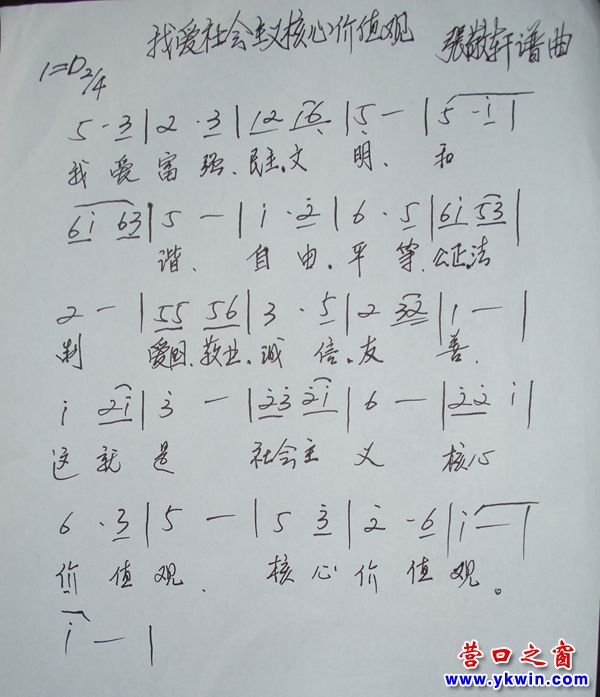 我爱社会主义核心价值观 张敬轩谱曲
1=D 2/4
5·3|2·3|12 16|5-|5·i|
我爱富强、民主、文明、和
6i 63|5-|i·2|6·5|6i 53|
谐、自由、平等、公正、法
2-|55 56|3·5|2 32|1-|
制 爱国、敬业、诚信、友善、
i 2i|3-|23 2i|6-|22 i|
这就是 社会主义 核心
6·3|5-|5 3|2·6|i-|
价值观、核心价值观。
i-|
营口之窗
www.ykwin.com